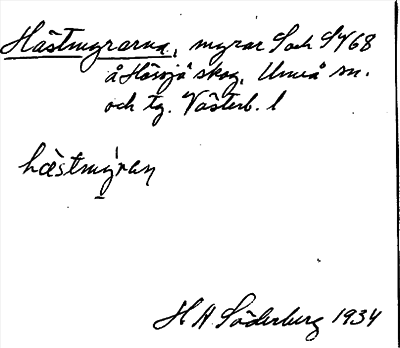 Hästmyrarna, myrar S och SV 68
å Hössjö skog, Umeå sn.
och tg. Västerb. l
hæstmýran
H A. Söderberg 1934